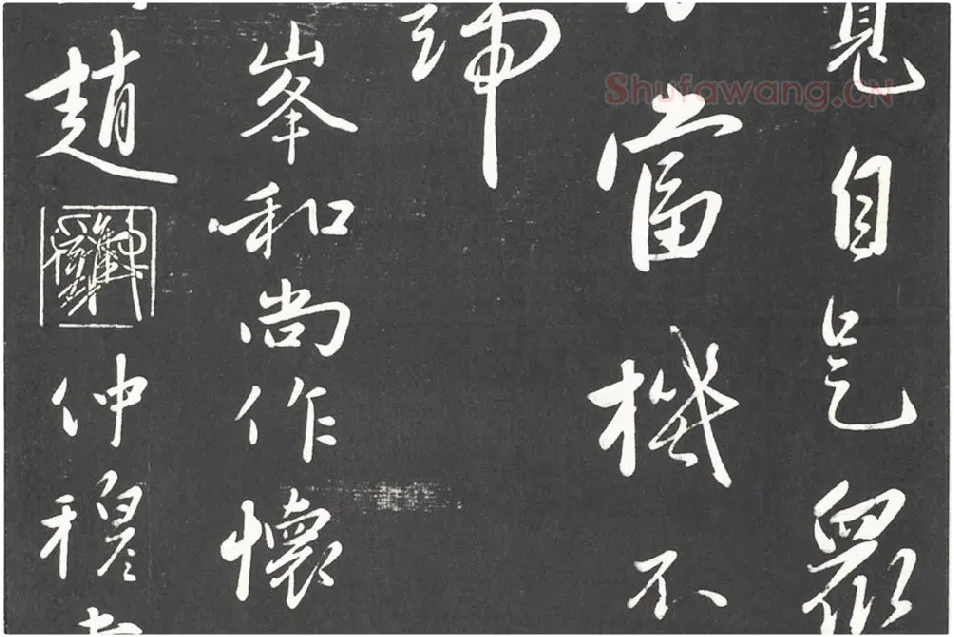 見自眾
當機不
歸
峯和尚作懷
趙仲穆書
Shufawang.CN